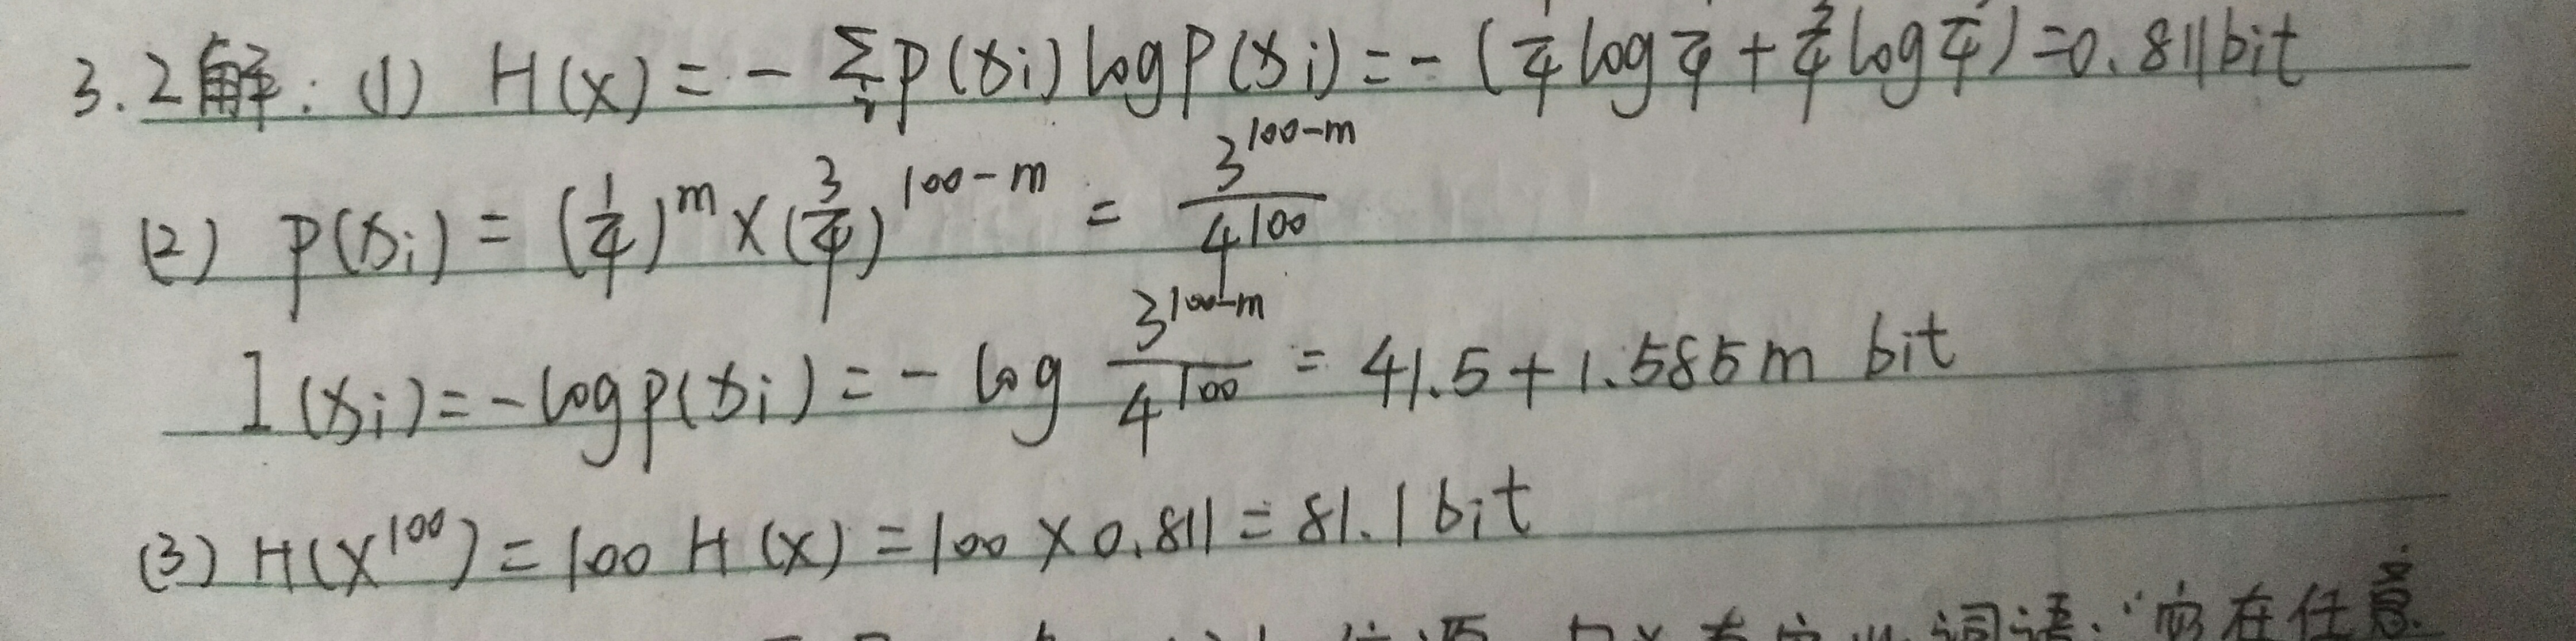 3.2解: (1) H(x) = - Σi p(xi) log p(xi) = - (1/4 log 1/4 + 3/4 log 3/4) = 0.811 bit
(2) p(xi) = (1/4)^m × (3/4)^100-m = 3^100-m / 4^100
I(xi) = - log p(xi) = - log 3^100-m / 4^100 = 41.5 + 1.585m bit
(3) H(X^100) = 100 H(X) = 100 × 0.811 = 81.1 bit
词语:"宿在任意